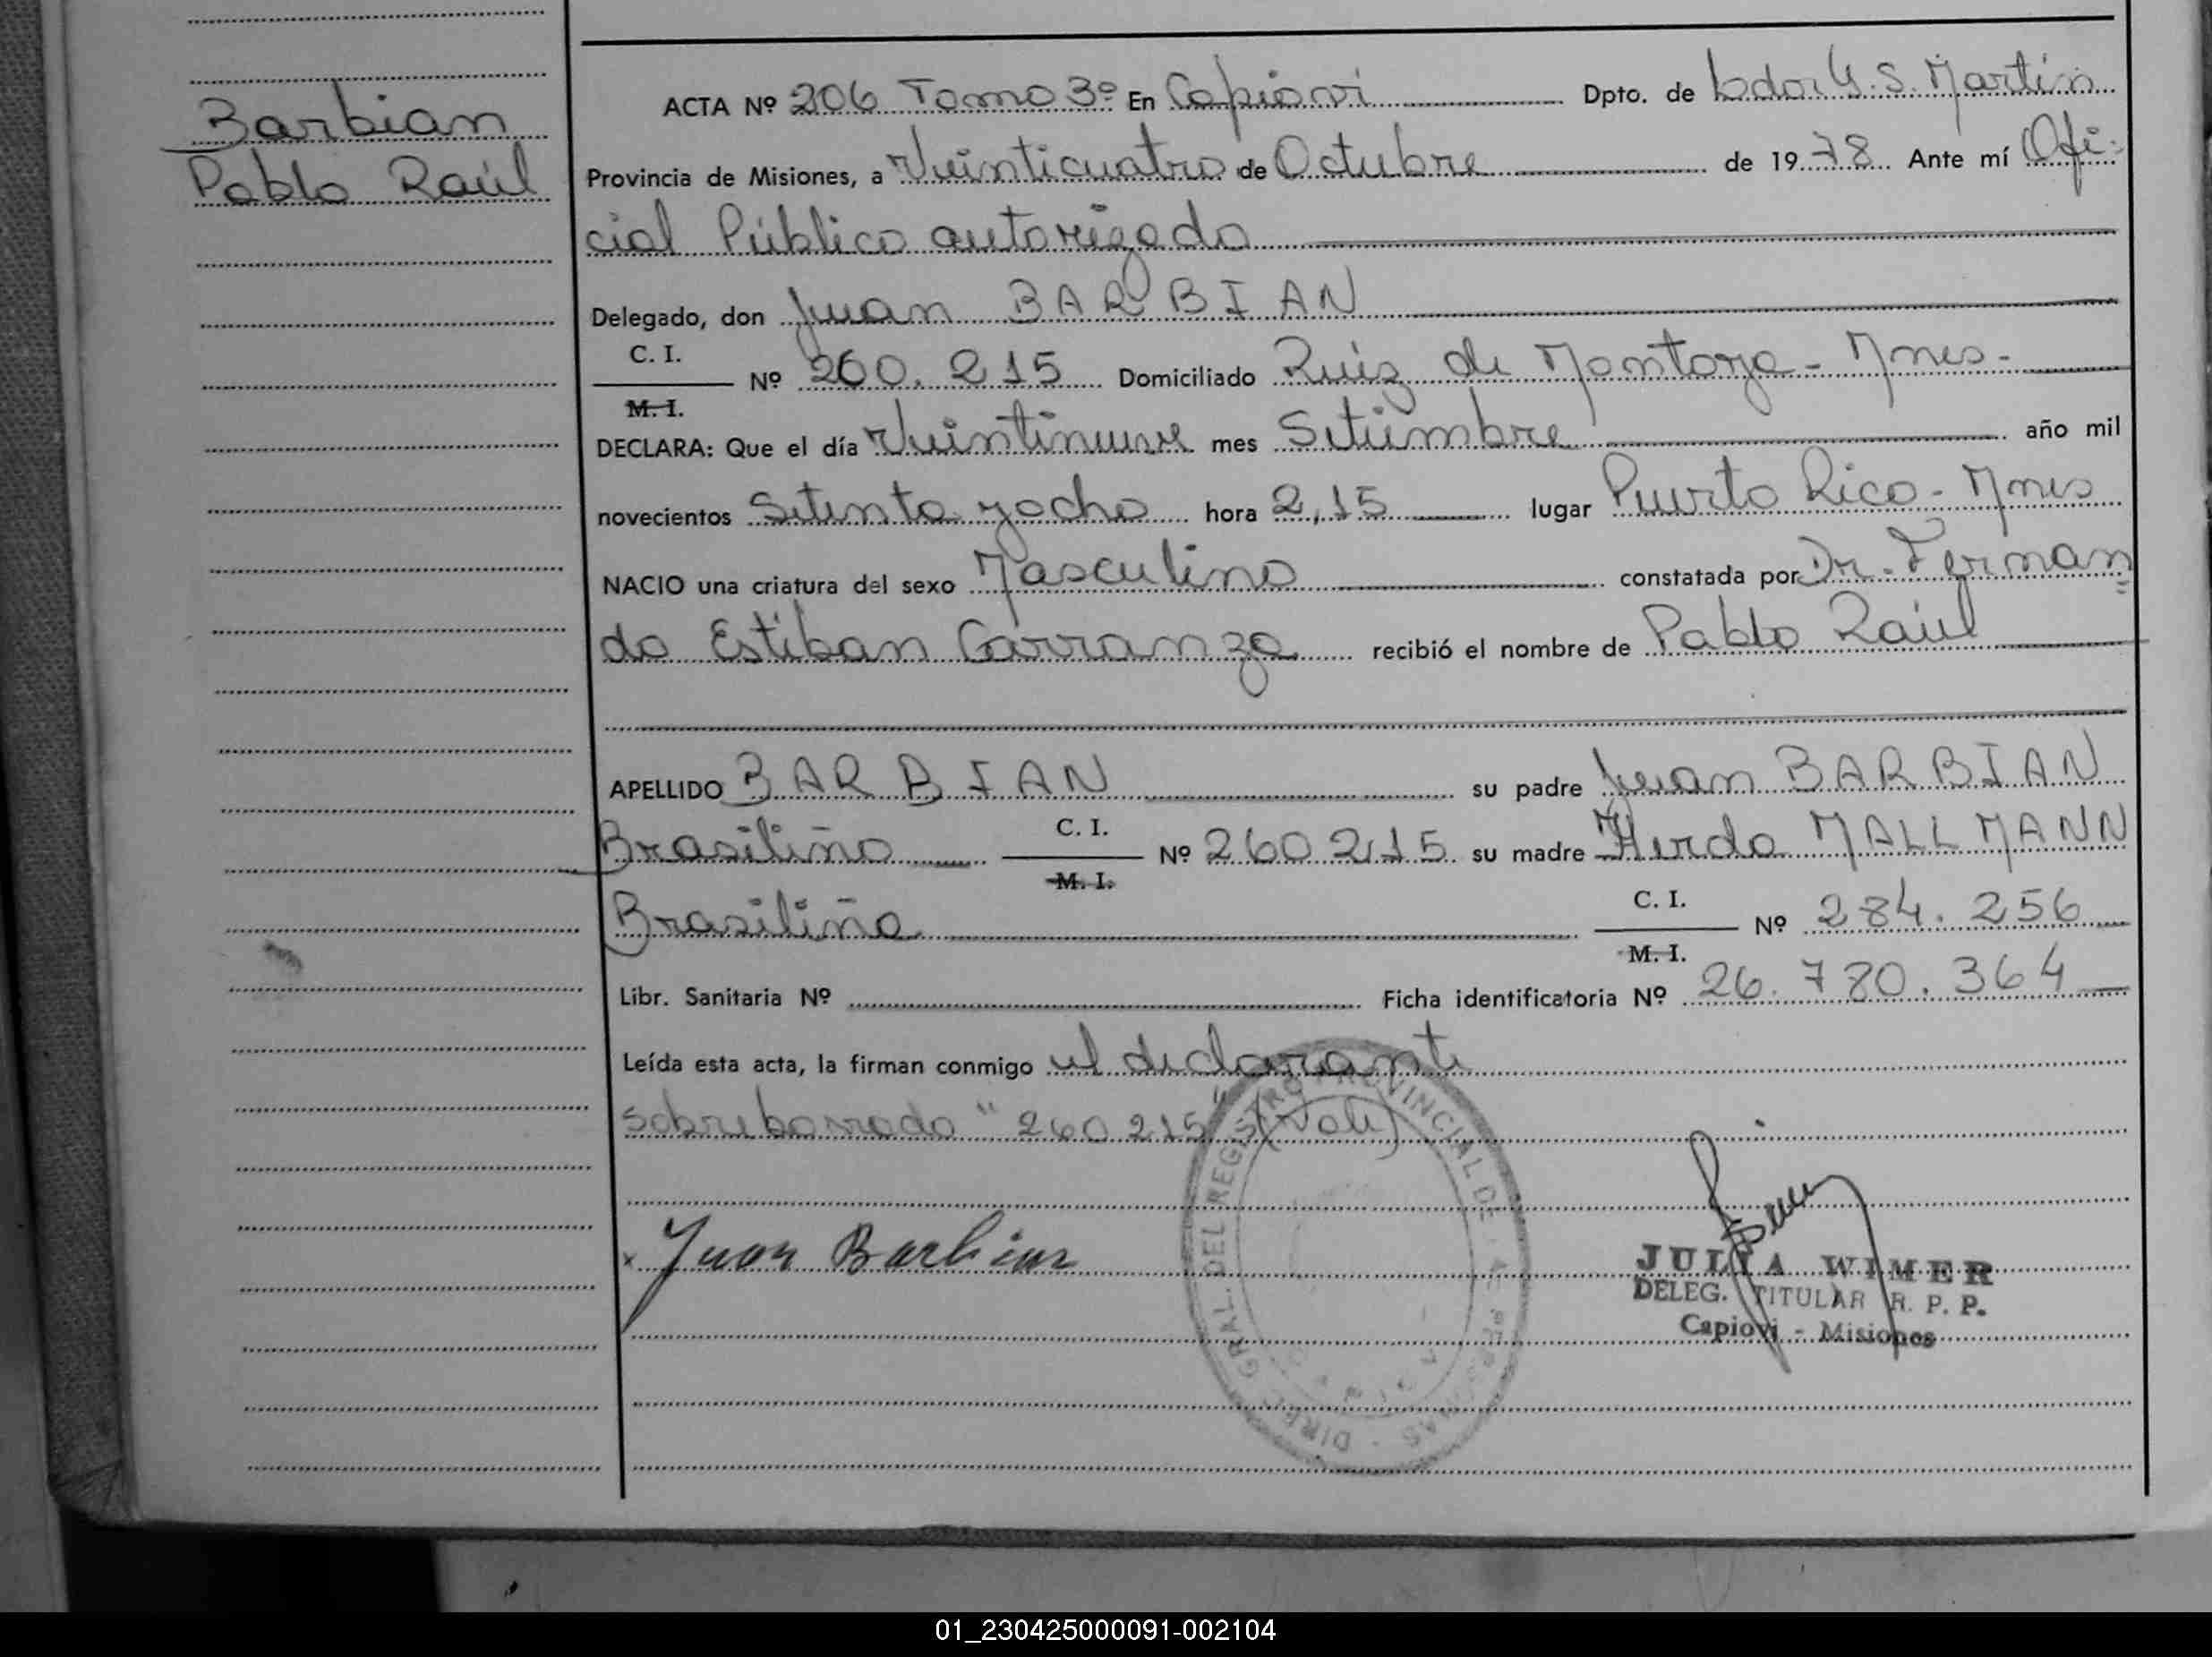 Barbian
Pablo Raúl
ACTA Nº 206 Tomo 3º En Capioví Dpto. de Ldor G. S. Martín
Provincia de Misiones, a Veinticuatro de Octubre de 1978 Ante mí Ofi-
cial Público autorizado
Delegado, don Juan BARBIAN
C. I.
Nº 260.215 Domiciliado Ruiz de Montoya - Mnes.
M. I.
DECLARA: Que el día Veintinueve mes Setiembre año mil
novecientos Setenta y ocho hora 2,15 lugar Puerto Rico - Mnes
NACIO una criatura del sexo Masculino constatada por Dr. Fernan=
do Esteban Carranza recibió el nombre de Pablo Raúl
APELLIDO BARBIAN su padre Juan BARBIAN
Brasileño C. I. Nº 260215 su madre MALLMANN
M. I.
Brasileña C. I. Nº 284.256
M. I.
Libr. Sanitaria Nº Ficha identificatoria Nº 26.780.364
Leída esta acta, la firman conmigo el declarante
Sobreborrado "260215" (Vale)
DIREC. GRAL. DEL REGISTRO PROVINCIAL DE LAS PERSONAS
x Juan Barbian
JULIA WIMER
DELEG. TITULAR R. P. P.
Capioví - Misiones
01_230425000091-002104